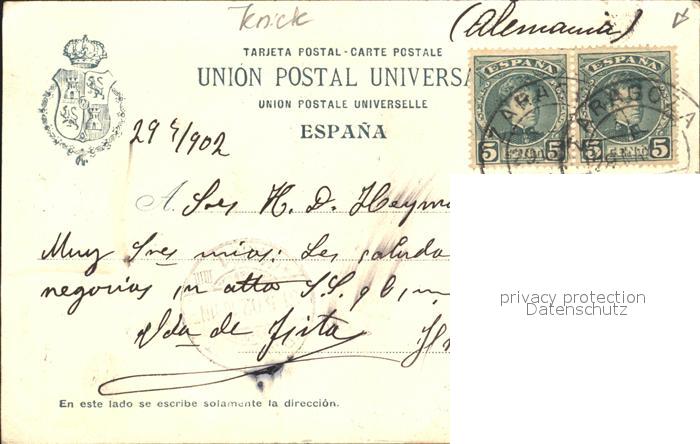 Knick
(Alemania)
TARJETA POSTAL - CARTE POSTALE
UNIÓN POSTAL UNIVERSA
UNION POSTALE UNIVERSELLE
ESPAÑA
ESPAÑA ESPAÑA
5 5 5 5
ZARAGOZA
29 /902
A. Sres H. D. Heym
Muy Sres mios: Les saluda
negocios
Vda de
En este lado se escribe solamente la dirección.
privacy protection
Datenschutz